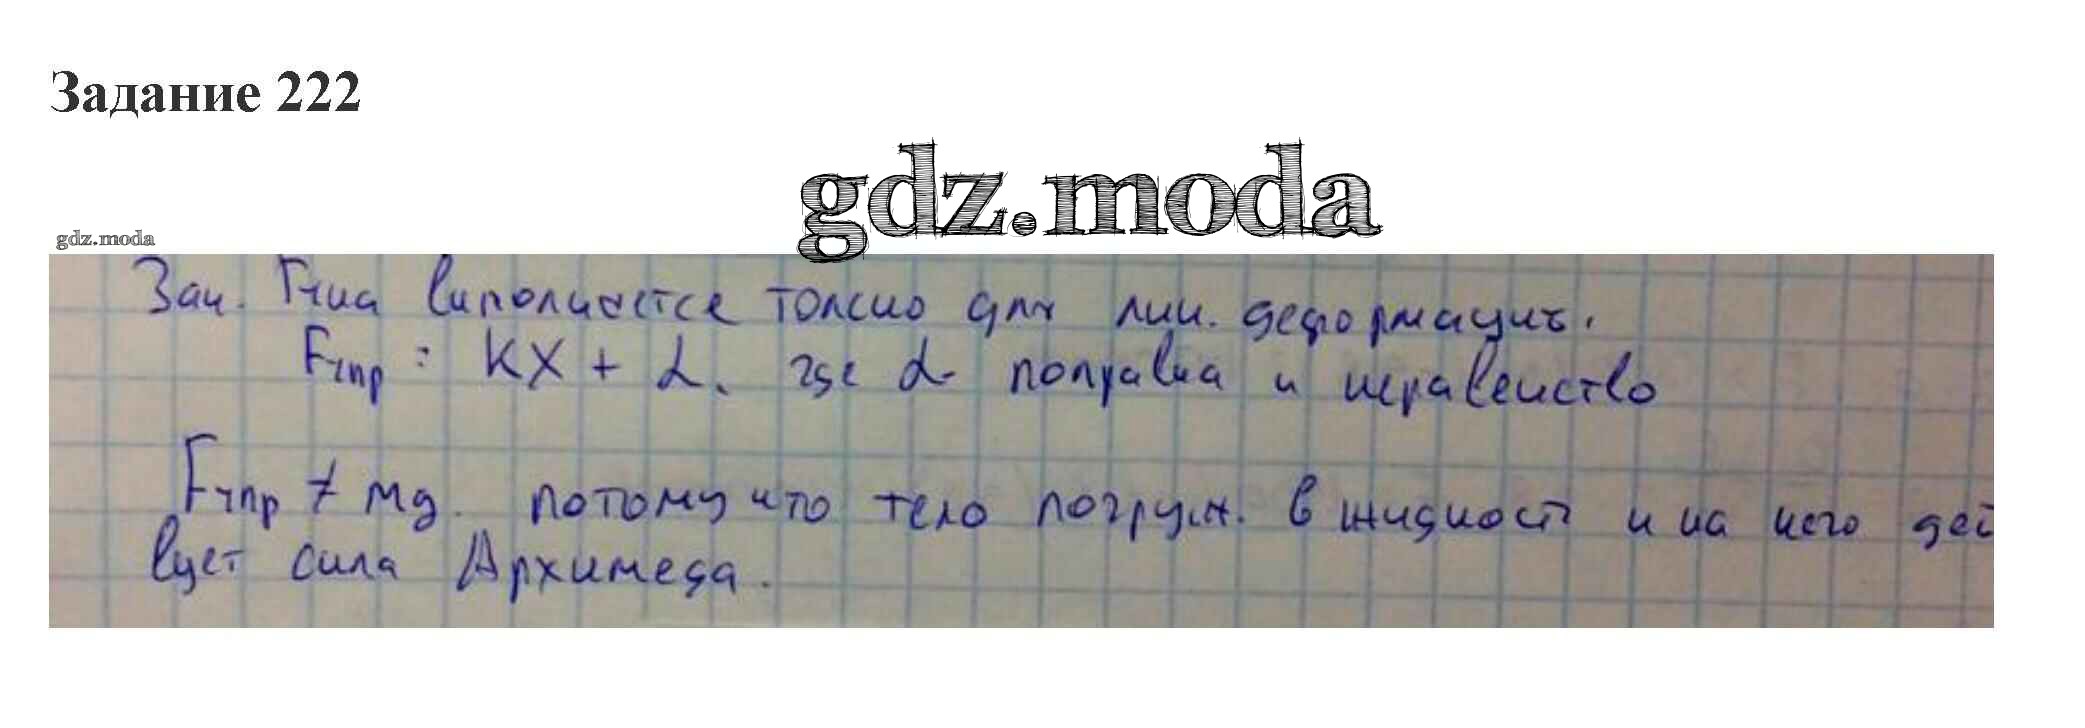 Задание 222
gdz.moda
gdz.moda
Зак. Гука выполняется только для лин. деформации.
Fупр = KX + α, где α - поправка и неравенство
Fупр ≠ mg. потому что тело погруж. в жидкость и на него дей
вует сила Архимеда.